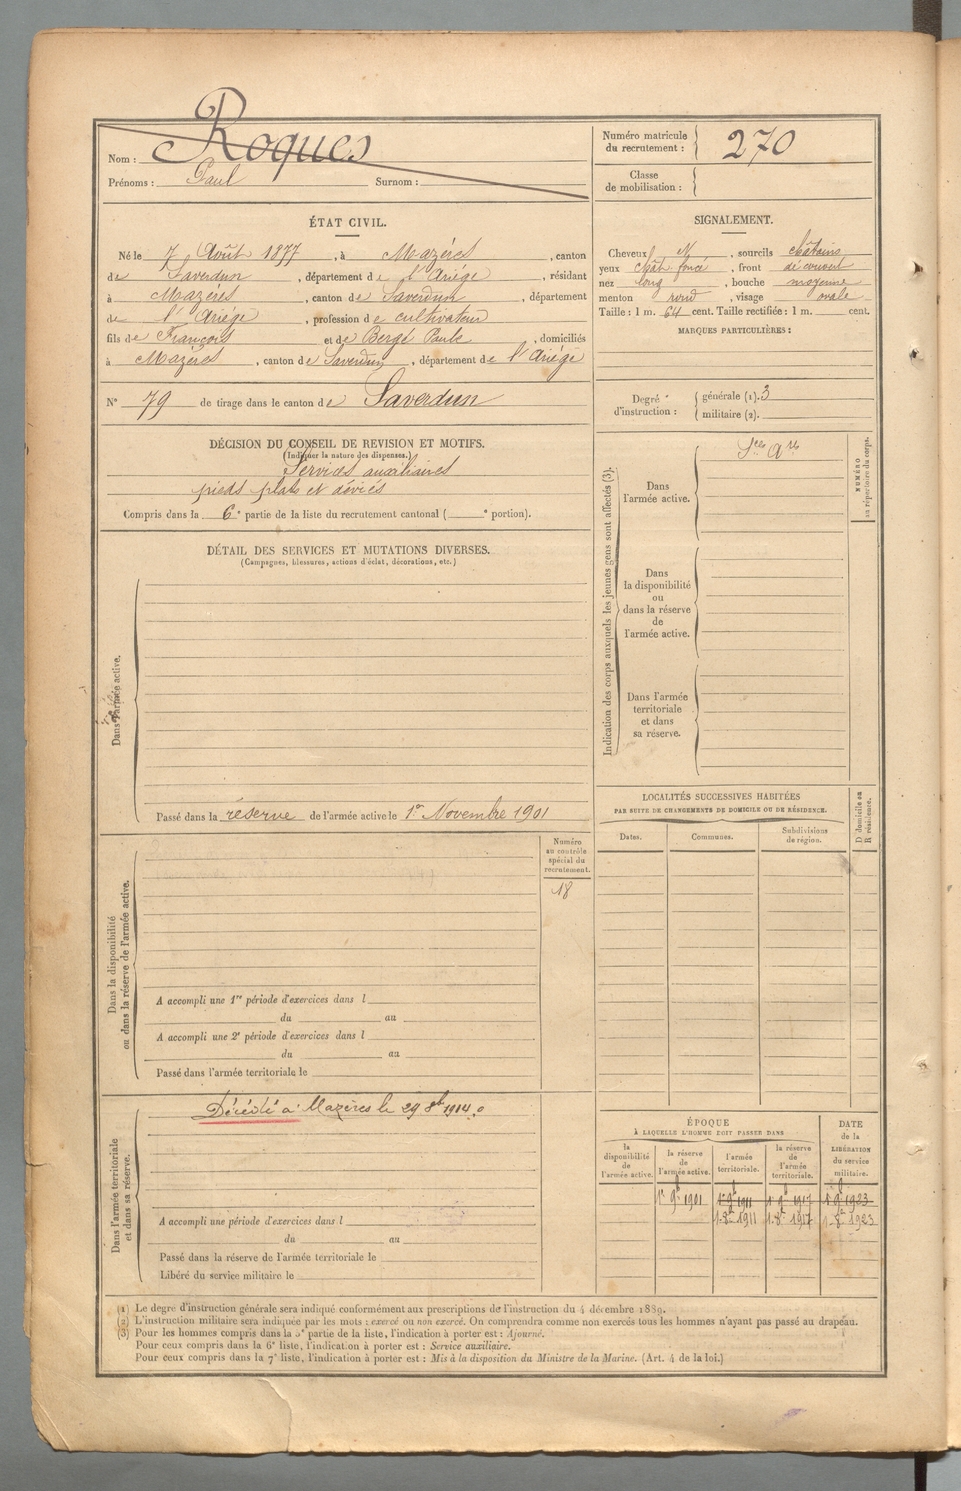 Nom : Roques
Prénoms : Paul Surnom :
Numéro matricule du recrutement : 270
Classe de mobilisation :
ÉTAT CIVIL.
Né le 7 Août 1877, à Mazères, canton
de Saverdun, département de l'Ariège, résidant
à Mazères, canton de Saverdun, département
de l'Ariège, profession de cultivateur
fils de François et de Bergé Paule, domiciliés
à Mazères, canton de Saverdun, département de l'Ariège
N° 79 de tirage dans le canton de Saverdun
SIGNALEMENT.
Cheveux N, sourcils châtains
yeux chât. foncé, front découvert
nez long, bouche moyenne
menton rond, visage ovale
Taille : 1 m. 64 cent. Taille rectifiée : 1 m. cent.
MARQUES PARTICULIÈRES :
Degré d'instruction : générale (1). 3
militaire (2).
DÉCISION DU CONSEIL DE REVISION ET MOTIFS.
(Indiquer la nature des dispenses.)
Services auxiliaires
pieds plats et déviés
Compris dans la 6e partie de la liste du recrutement cantonal ( e portion).
DÉTAIL DES SERVICES ET MUTATIONS DIVERSES.
(Campagnes, blessures, actions d'éclat, décorations, etc.)
Dans l'armée active.
Passé dans la réserve de l'armée active le 1er Novembre 1901
Indication des corps auxquels les jeunes gens sont affectés (3).
NUMÉRO au répertoire du corps.
Dans l'armée active.
Sces Ares
Dans la disponibilité ou dans la réserve de l'armée active.
Dans l'armée territoriale et dans sa réserve.
Dans la disponibilité ou dans la réserve de l'armée active.
Numéro au contrôle spécial du recrutement.
18
A accompli une 1re période d'exercices dans l
du au
A accompli une 2e période d'exercices dans l
du au
Passé dans l'armée territoriale le
LOCALITÉS SUCCESSIVES HABITÉES
PAR SUITE DE CHANGEMENTS DE DOMICILE OU DE RÉSIDENCE.
D domicile ou R résidence.
Dates. Communes. Subdivisions de région.
Dans l'armée territoriale et dans sa réserve.
Décédé à Mazères le 29 8bre 1914.
A accompli une période d'exercices dans l
du au
Passé dans la réserve de l'armée territoriale le
Libéré du service militaire le
ÉPOQUE
À LAQUELLE L'HOMME DOIT PASSER DANS
DATE de la LIBÉRATION du service militaire.
la disponibilité de l'armée active. la réserve de l'armée active. l'armée territoriale. la réserve de l'armée territoriale.
1r 9b 1901 1r 9b 1911 1r 9b 1917 1r 9b 1923
1.8b 1911 1.8b 1917 1.8b 1923
(1) Le degré d'instruction générale sera indiqué conformément aux prescriptions de l'instruction du 4 décembre 1889.
(2) L'instruction militaire sera indiquée par les mots : exercé ou non exercé. On comprendra comme non exercés tous les hommes n'ayant pas passé au drapeau.
(3) Pour les hommes compris dans la 5e partie de la liste, l'indication à porter est : Ajourné.
Pour ceux compris dans la 6e liste, l'indication à porter est : Service auxiliaire.
Pour ceux compris dans la 7e liste, l'indication à porter est : Mis à la disposition du Ministre de la Marine. (Art. 4 de la loi.)